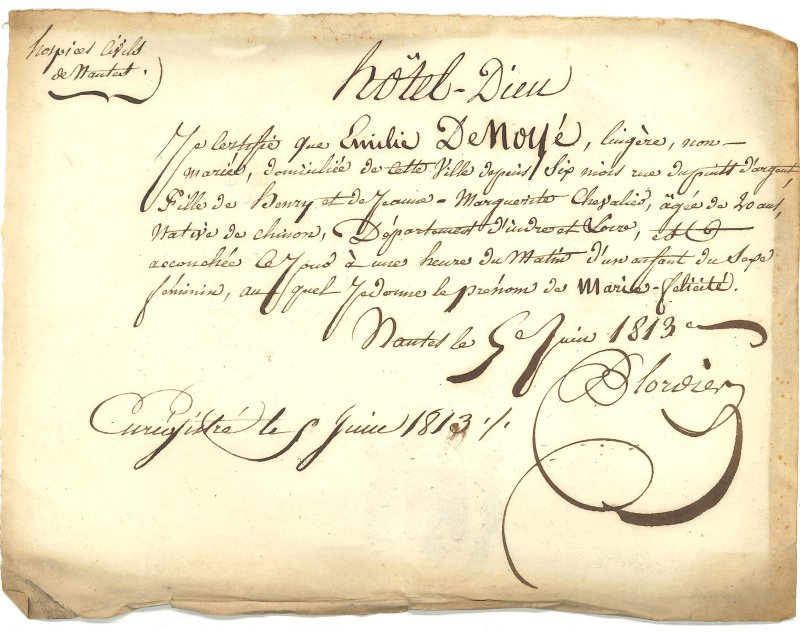 hospices Civils
de Nantes.
hôtel-Dieu
Je certifie que Emilie DeNoyé, lingère, non-
mariée, domiciliée de cette Ville depuis Six mois rue dupuits d'argent,
Fille de henry et de Jeanne-Marguerite Chevalier, âgée de 20 ans,
Native de chinon, Département d'indre et Loire, est
accouchée Ce Jour à une heure du Matin d'un enfant du Sexe
féminin, au quel Je donne le prénom de Marie-felicité.
Nantes le 5 Juin 1813
Enregistré le 5 Juin 1813